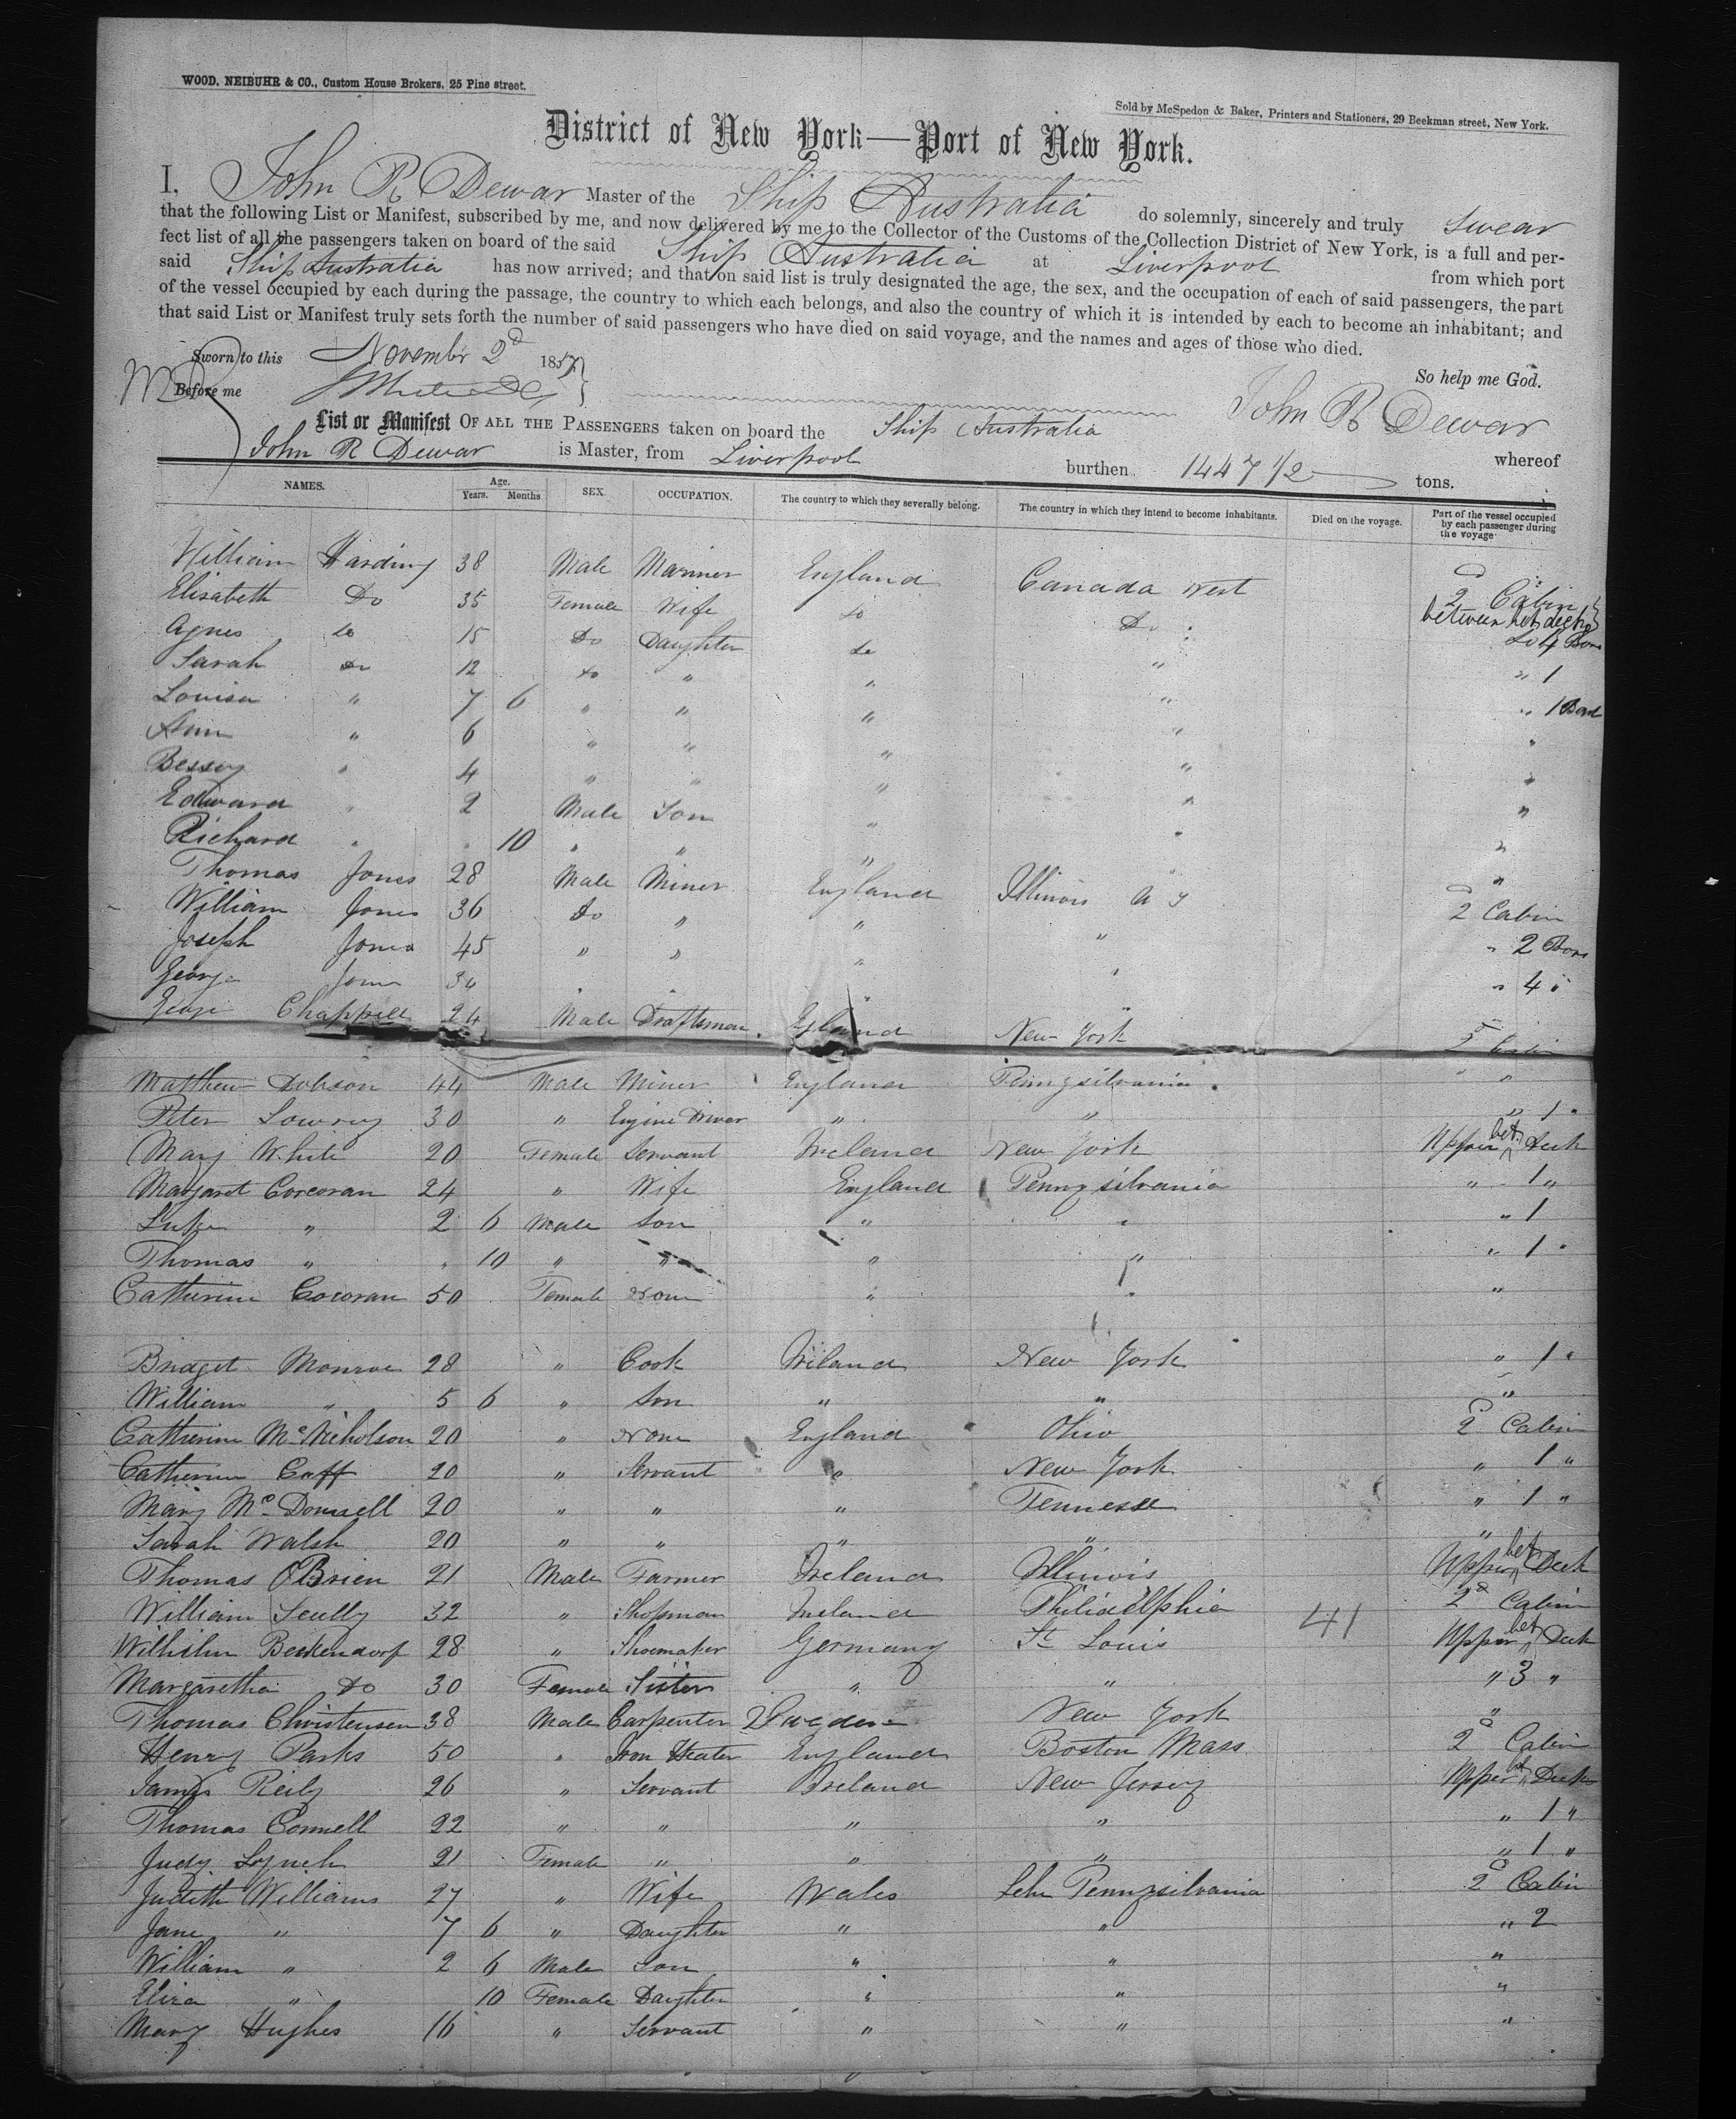 WOOD, NEIBUHR & CO., Custom House Brokers, 25 Pine street.
Sold by McSpedon & Baker, Printers and Stationers, 29 Beekman street, New York.
District of New York—Port of New York.
I, John R Dewar Master of the Ship Australia do solemnly, sincerely and truly swear
that the following List or Manifest, subscribed by me, and now delivered by me to the Collector of the Customs of the Collection District of New York, is a full and per-
fect list of all the passengers taken on board of the said Ship Australia at Liverpool from which port
said Ship Australia has now arrived; and that on said list is truly designated the age, the sex, and the occupation of each of said passengers, the part
of the vessel occupied by each during the passage, the country to which each belongs, and also the country of which it is intended by each to become an inhabitant; and
that said List or Manifest truly sets forth the number of said passengers who have died on said voyage, and the names and ages of those who died.
Sworn to this November 2d 1857 So help me God.
Before me John R Dewar
List or Manifest OF ALL THE PASSENGERS taken on board the Ship Australia whereof
John R Dewar is Master, from Liverpool burthen 1447 1/2 tons.
NAMES. Age. Years. Months SEX. OCCUPATION. The country to which they severally belong. The country in which they intend to become inhabitants. Died on the voyage. Part of the vessel occupied by each passenger during the voyage
William Harding 38 Male Mariner England Canada West 2 Cabin
Elisabeth Do 35 Female Wife do Do between bet decks
Agnes do 15 Do Daughter do do 4
Sarah do 12 do " " " " 1
Louisa " 7 6 " " " " " 1
Ann " 6 " " " " "
Bessey " 4 " " " " "
Edward " 2 Male Son " " "
Richard " " 10 " " " " "
Thomas Jones 28 Male Miner England Illinois 2 Cabin
William Jones 36 Do " " " " 2
Joseph Jones 45 " " " " " 4
George Jones 30 " " " "
George Chappell 24 Male Draftsman England New York 2 Cabin
Matthew Dobson 44 Male Miner England Pennysilvania "
Peter Lowrey 30 " Engine Driver " " " 1 "
Mary White 20 Female Servant Ireland New York Upper bet Deck
Margaret Corcoran 24 " Wife England Pennysilvania " 1 "
Luke " 2 6 Male Son " " " 1
Thomas " " 10 " " " " " 1 "
Catherine Cocoran 50 Female None " " "
Bridget Monroe 28 " Cook Ireland New York " 1 "
William " 5 6 " Son " " "
Catherine Mc Nicholson 20 " None England Ohio 2 Cabin
Catherine Caff 20 " Servant " New York " 1 "
Mary Mc Donnell 20 " " " Tennessee " 1 "
Sarah Walsh 20 " " " " "
Thomas O'Brien 21 Male Farmer Ireland Illinois Upper bet Deck
William Scully 32 " Shopman Ireland Philidelphia 2d Cabin
41
Wilhilm Beckendorf 28 " Shoemaker Germany St Louis Upper bet Deck
Margaretha Do 30 Female Sister " " " 3 "
Thomas Christensen 38 Male Carpenter Sweden New York "
Henry Parks 50 " Iron Heater England Boston Mass 2d Cabin
James Reily 26 " Servant Ireland New Jersey Upper bet Deck
Thomas Connell 22 " " " " " 1 "
Judy Lynch 21 Female " " " " 1 "
Judith Williams 27 " Wife Wales Pennysilvania 2d Cabin
Jane " 7 6 " Daughter " " " 2
William " 2 6 Male Son " " "
Eliza " 10 Female Daughter " " "
Mary Hughes 16 " Servant " " "